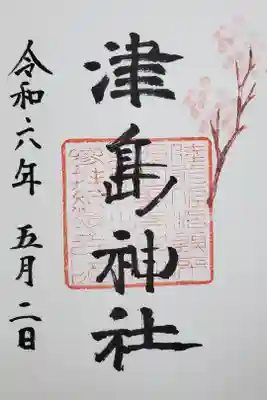 津島神社
令和六年 五月二日